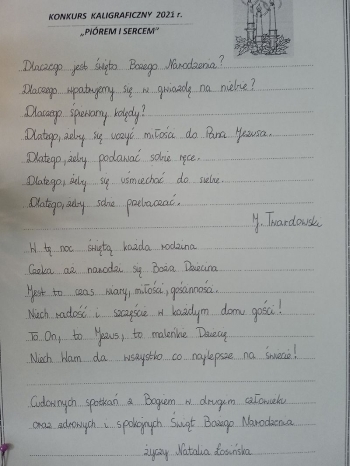 KONKURS KALIGRAFICZNY 2021 r.
„PIÓREM I SERCEM”
Dlaczego jest święto Bożego Narodzenia?
Dlaczego wpatrujemy się w gwiazdę na niebie?
Dlaczego śpiewamy kolędy?
Dlatego, żeby się uczyć miłości do Pana Jezusa.
Dlatego, żeby podawać sobie ręce.
Dlatego, żeby się uśmiechać do siebie.
Dlatego, żeby sobie przebaczać.
J. Twardowski
W tę noc świętą każda rodzina
Czeka aż narodzi się Boża Dziecina
Jest to czas wiary, miłości,
Niech radość i szczęście w każdym domu gości!
To On, to Jezus, to maleńkie Dziecię
Niech Wam da wszystko co najlepsze na świecie!
Cudownych spotkań z Bogiem w drugim człowieku
oraz zdrowych i spokojnych Świąt Bożego Narodzenia
życzy Natalia Łosińska